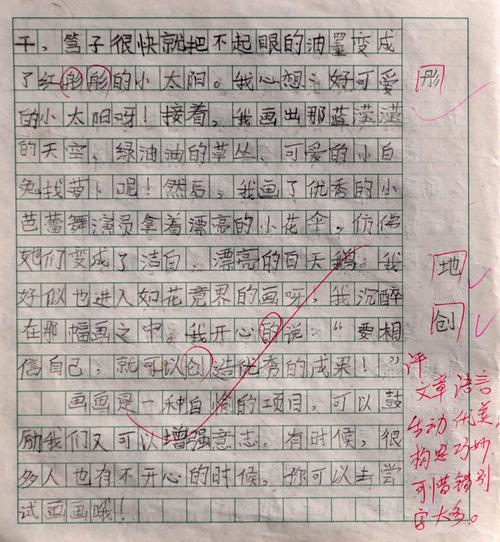 干，笃子很快就把不起眼的油墨变成
了红彤彤的小太阳。我心想：好可爱
的小太阳呀！接着，我画出那蓝滢滢
的天空、绿油油的草丛、可爱的小白
兔找萝卜呢！然后，我画了优秀的小
芭蕾舞演员拿着漂亮的小花伞，仿佛
她们变成了洁白、漂亮的白天鹅。我
好似也进入如花竟界的画呀，我沉醉
在那幅画之中。我开心的说：“要相
信自己，就可以创造优秀的成果！”
画画是一种自愉的项目，可以鼓
励我们又可以增强意志。有时候，很
多人也有不开心的时候，你可以去尝
试画画哦！
彤
地
创
评
文章语言
生动优美，
构思巧妙
可惜错别
字太多。